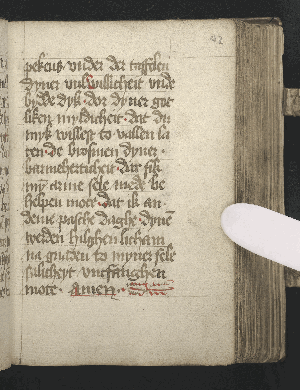 42
sekens vnder der taffelen
dyner vulwillicheit vnde
bydde dyk dor dyner got
liken myldicheit dat du
myk willest to vallen la
ten de brosmen dyner
barmeherticheit dat sik
my arme sele mede be
helpen mote dat ik an
deme pasche daghe dynē
werden hilghen licham
na gnaden to myner sele
salicheyt vntfanghen
mote. Amen.